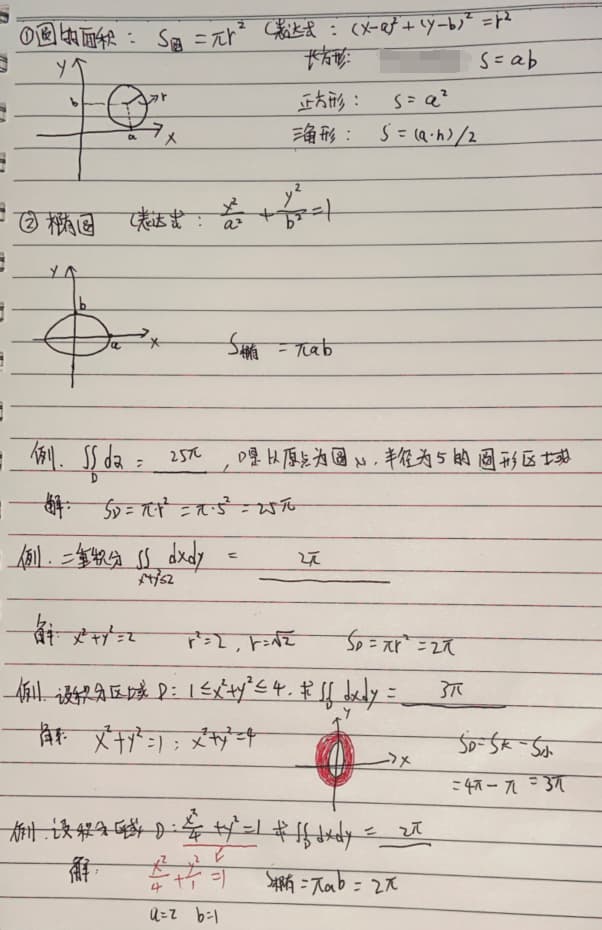 ①圆的面积： S圆 = πr² (表达式：(x-a)² + (y-b)² = r²
长方形： S = ab
y b r a x
正方形： S = a²
三角形： S = (a·h)/2
②椭圆 (表达式： x²/a² + y²/b² = 1
y b a x
S椭 = πab
例. ∬D dσ = 25π , D是以原点为圆心, 半径为5的圆形区域
解： SD = π·r² = π·5² = 25π
例. 二重积分 ∬x²+y²≤2 dxdy = 2π
解： x²+y²=2 r²=2, r=√2 SD = πr² = 2π
例. 设积分区域 D: 1≤x²+y²≤4. 求∬D dxdy = 3π
解： x²+y²=1; x²+y²=4
y x
SD = S大 - S小
= 4π - π = 3π
例. 设积分区域 D: x²/4 + y² = 1 求∬D dxdy = 2π
解： x²/4 + y²/1 = 1 S椭 = πab = 2π
a=2 b=1